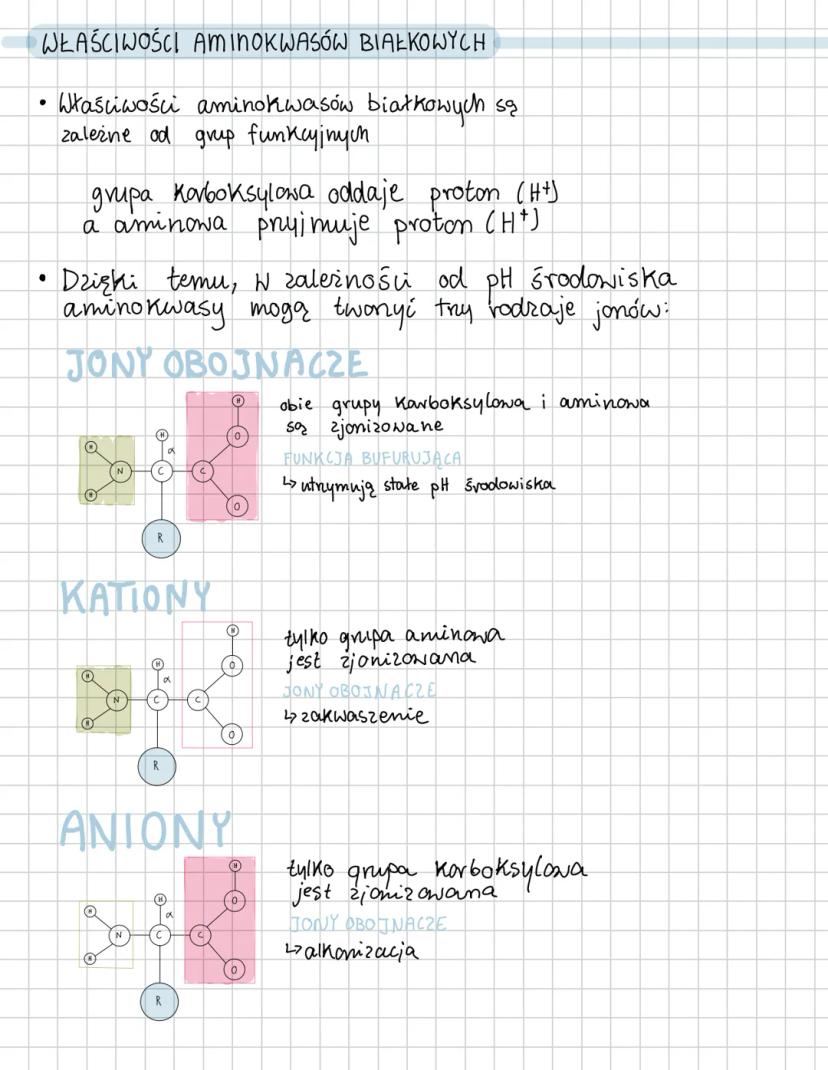 WŁAŚCIWOŚCI AMINOKWASÓW BIAŁKOWYCH
• Właściwości aminokwasów białkowych są
zależne od grup funkcyjnych
grupa karboksylowa oddaje proton (H+)
a aminowa przyjmuje proton (H+)
• Dzięki temu, w zależności od pH środowiska
aminokwasy mogą tworzyć trzy rodzaje jonów:
JONY OBOJNACZE
obie grupy karboksylowa i aminowa
są zjonizowane
FUNKCJA BUFURUJĄCA
↳ utrzymują stałe pH środowiska
H
H
O
H
α
N
C
C
H
O
R
KATIONY
tylko grupa aminowa
jest zjonizowana
JONY OBOJNACZE
↳ zakwaszenie
H
O
H
H
α
N
C
C
H
O
R
ANIONY
tylko grupa karboksylowa
jest zjonizowana
JONY OBOJNACZE
↳ alkanizacja
H
O
H
H
α
N
C
C
H
O
R